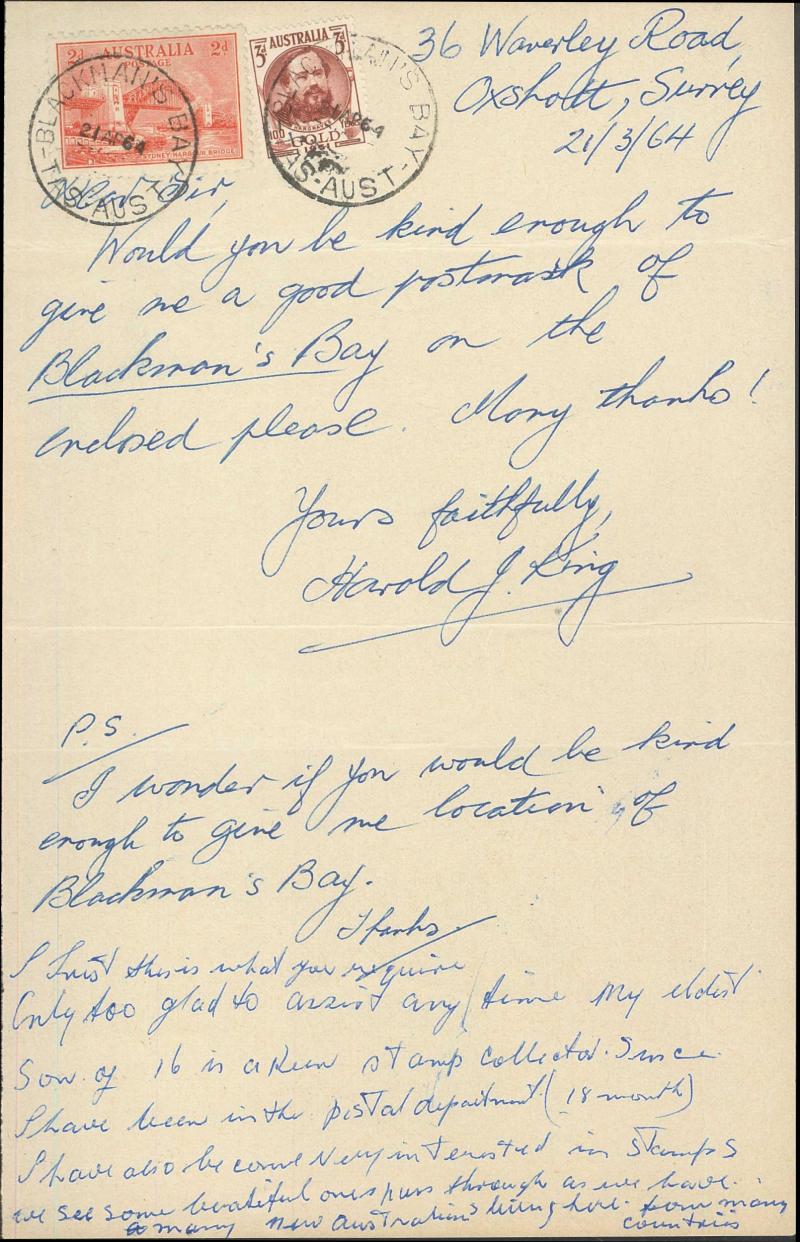 2d AUSTRALIA 2d
POSTAGE
SYDNEY HARBOUR BRIDGE
3d AUSTRALIA 3d
GOLD
1951
BLACKMAN'S BAY
21 AP 64
TAS-AUST
BLACKMAN'S BAY
21 AP 64
TAS-AUST
36 Waverley Road,
Oxshott, Surrey
21/3/64
Dear Sir,
Would you be kind enough to
give me a good postmark of
Blackman's Bay on the
enclosed please. Many thanks!
Yours faithfully,
Harold J. King
P.S.
I wonder if you would be kind
enough to give me location of
Blackman's Bay.
Thanks
I trust this is what you require
Only too glad to assist any time My eldest
Son of 16 is a keen stamp collector. Since
I have been in the postal department (18 month)
I have also become very interested in stamps
we see some beautiful ones pass through as we have
a many new Australians living here from many
countries